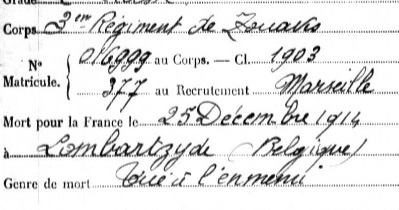 Corps 3em Régiment de Zouaves
No 016999 au Corps. — Cl. 1903
Matricule. 377 au Recrutement Marseille
Mort pour la France le 25 Décembre 1914
à Lombartzyde (Belgique)
Genre de mort Tué à l'ennemi